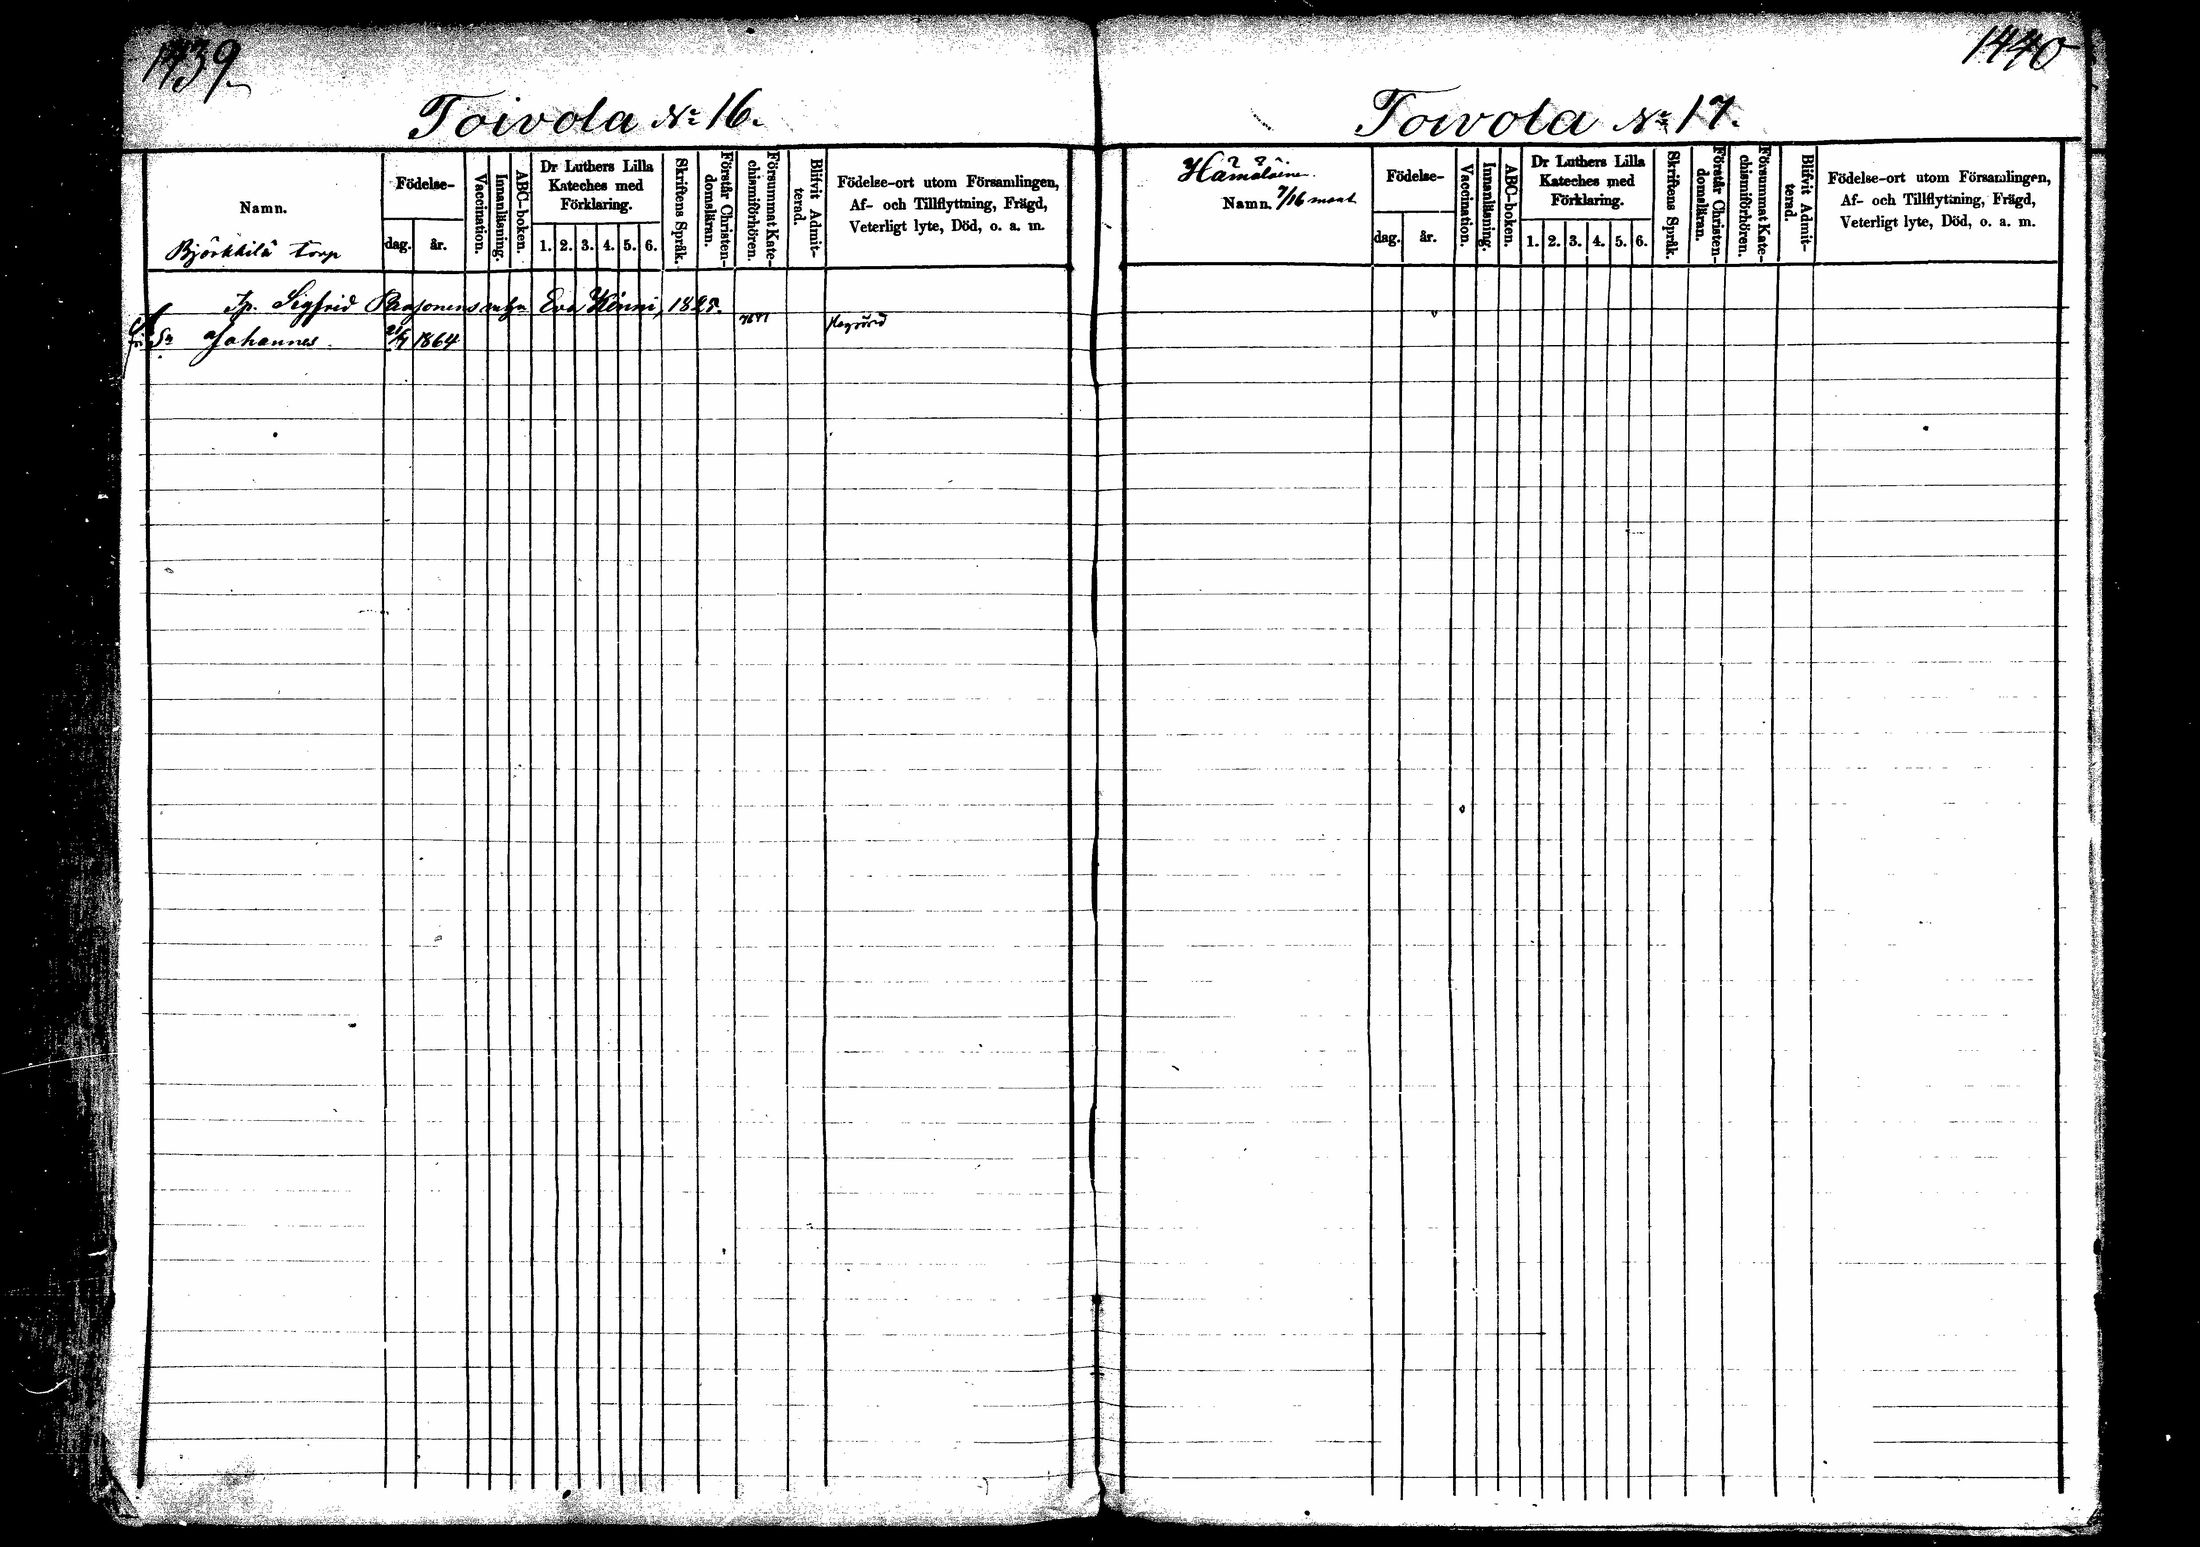 1439
Toivola № 16.
Namn.
Björkkilä torp
Födelse-
dag.
år.
Vaccination.
Innanläsning.
ABC-boken.
Dr Luthers Lilla
Kateches med
Förklaring.
1. 2. 3. 4. 5. 6.
Skriftens Språk.
Förstår Christen-
domsläran.
Försummat Kate-
chismiförhören.
Blifvit Admit-
terad.
Födelse-ort utom Församlingen,
Af- och Tillflyttning, Frägd,
Veterligt lyte, Död, o. a. m.
Sigfrid Eva Könni, 1825.
Sn Johannes 21/7 1864
1440
Toivola № 17.
Hämäläinen
Namn. 7/16 mant
Födelse-
dag.
år.
Vaccination.
Innanläsning.
ABC-boken.
Dr Luthers Lilla
Kateches med
Förklaring.
1. 2. 3. 4. 5. 6.
Skriftens Språk.
Förstår Christen-
domsläran.
Försummat Kate-
chismiförhören.
Blifvit Admit-
terad.
Födelse-ort utom Församlingen,
Af- och Tillflyttning, Frägd,
Veterligt lyte, Död, o. a. m.